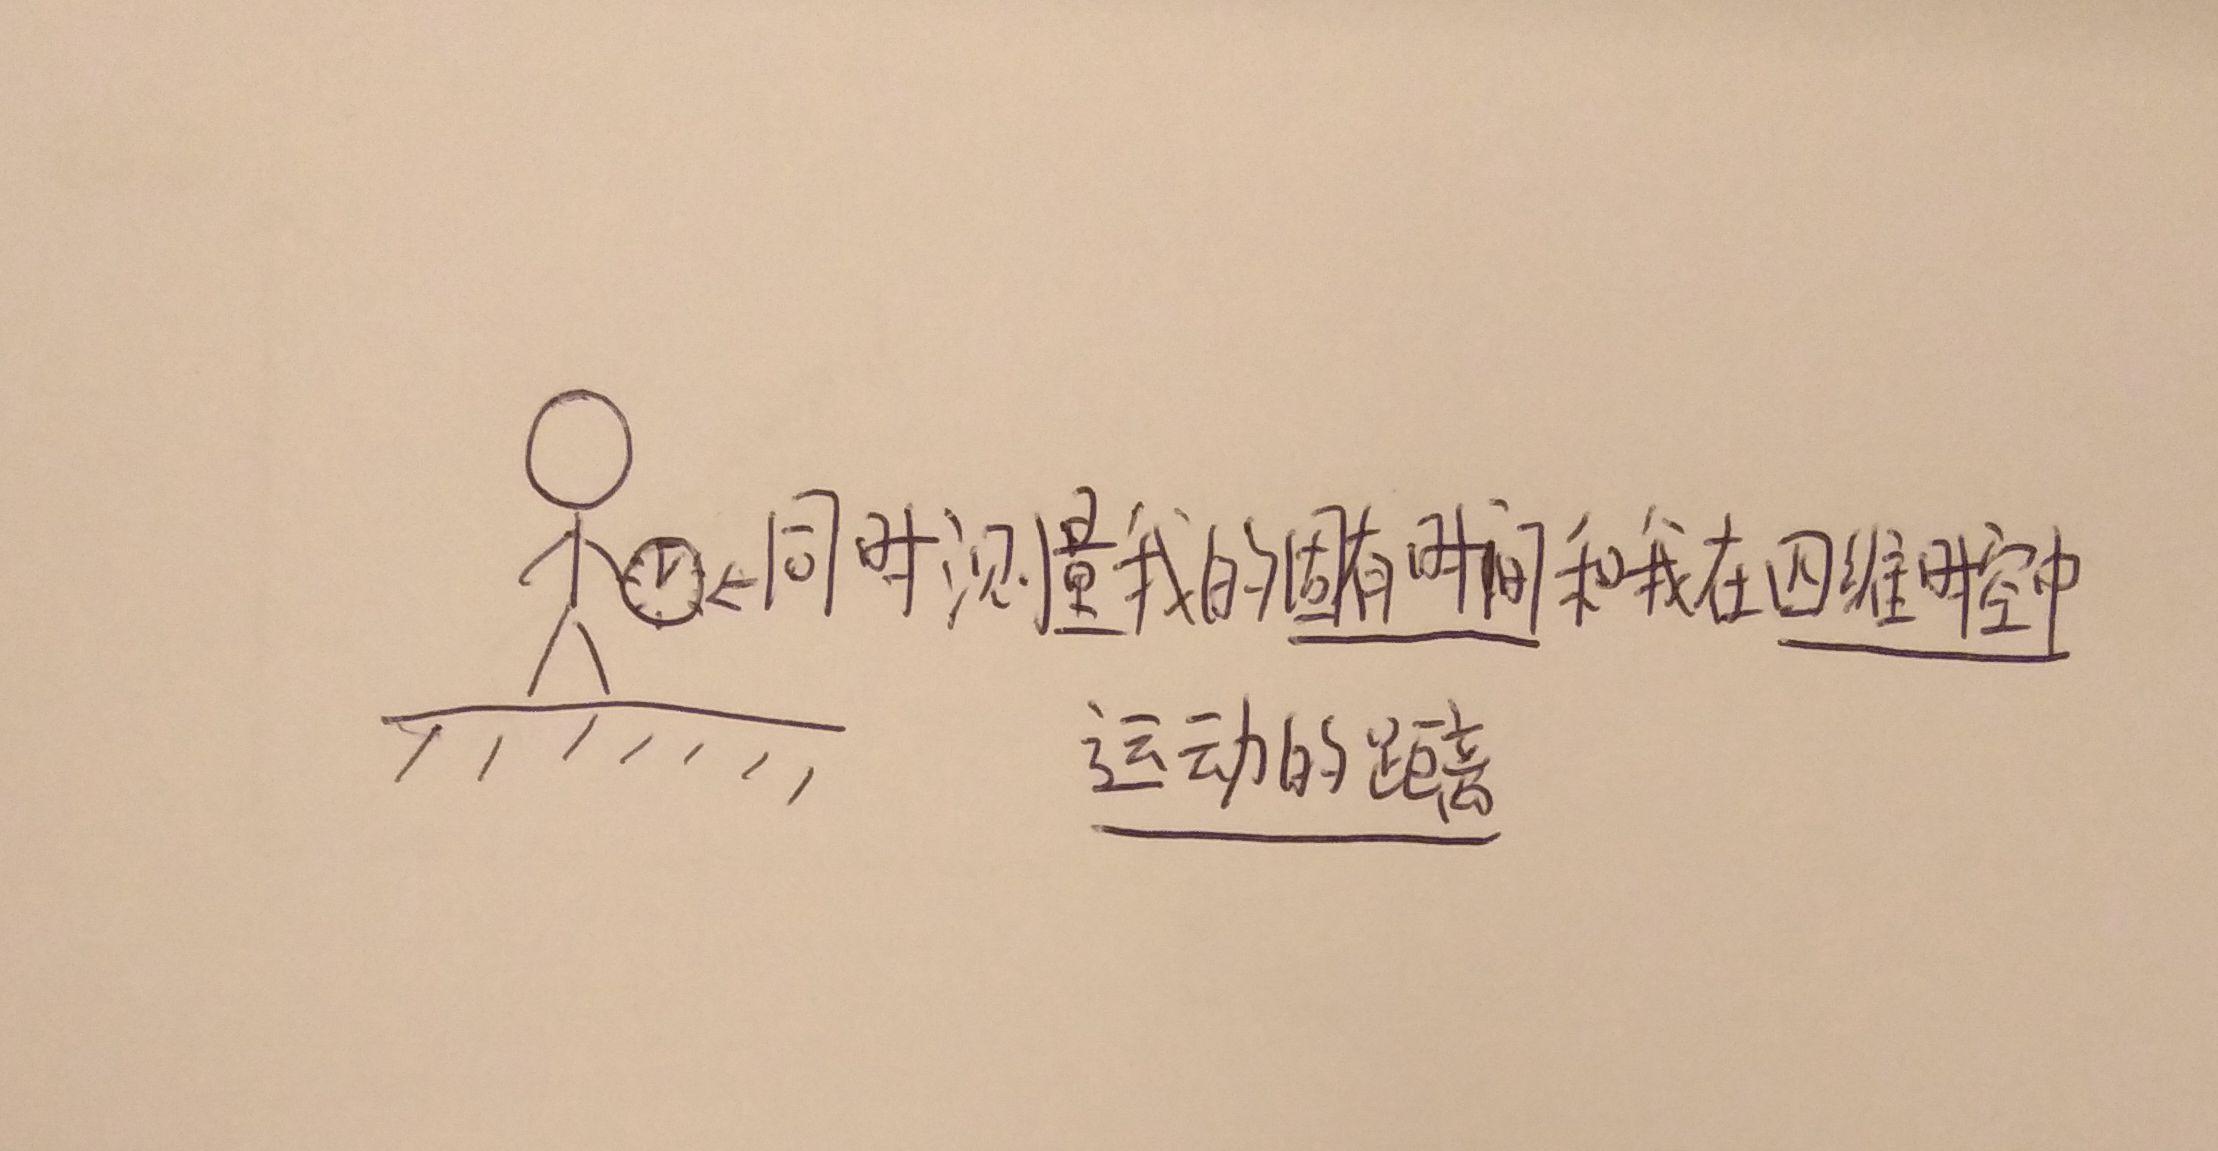 同时测量我的固有时间和我在四维时空中
运动的距离